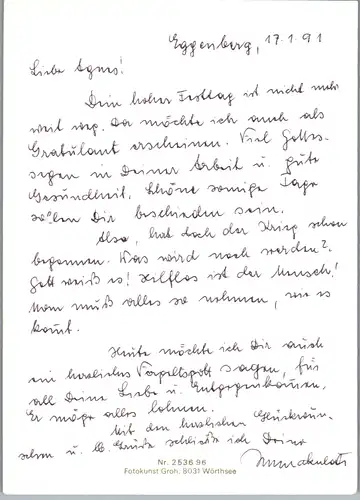 Eggenberg, 17.1.91
Liebe Agnes!
Dein hoher Festtag ist nicht mehr
weit weg. Da möchte ich auch als
Gratulant erscheinen. Viel Gottes-
segen in Deiner Arbeit u. gute
Gesundheit. Schöne sonnige Tage
sollen Dir beschieden sein.
Also, hat doch der Krieg schon
begonnen. Was wird noch werden?
Gott weiß es! Hilflos ist der Mensch!
Man muß alles so nehmen, wie es
kommt.
Heute möchte ich Dir auch
ein herzliches Vergeltsgott sagen, für
all Deine Liebe u. Entgegenkommen.
Er möge alles lohnen.
Mit den herzlichen Glückwün-
schen u. lb. Grüße schließe ich Deine
Immakulata
Nr. 2536 96
Fotokunst Groh, 8031 Wörthsee